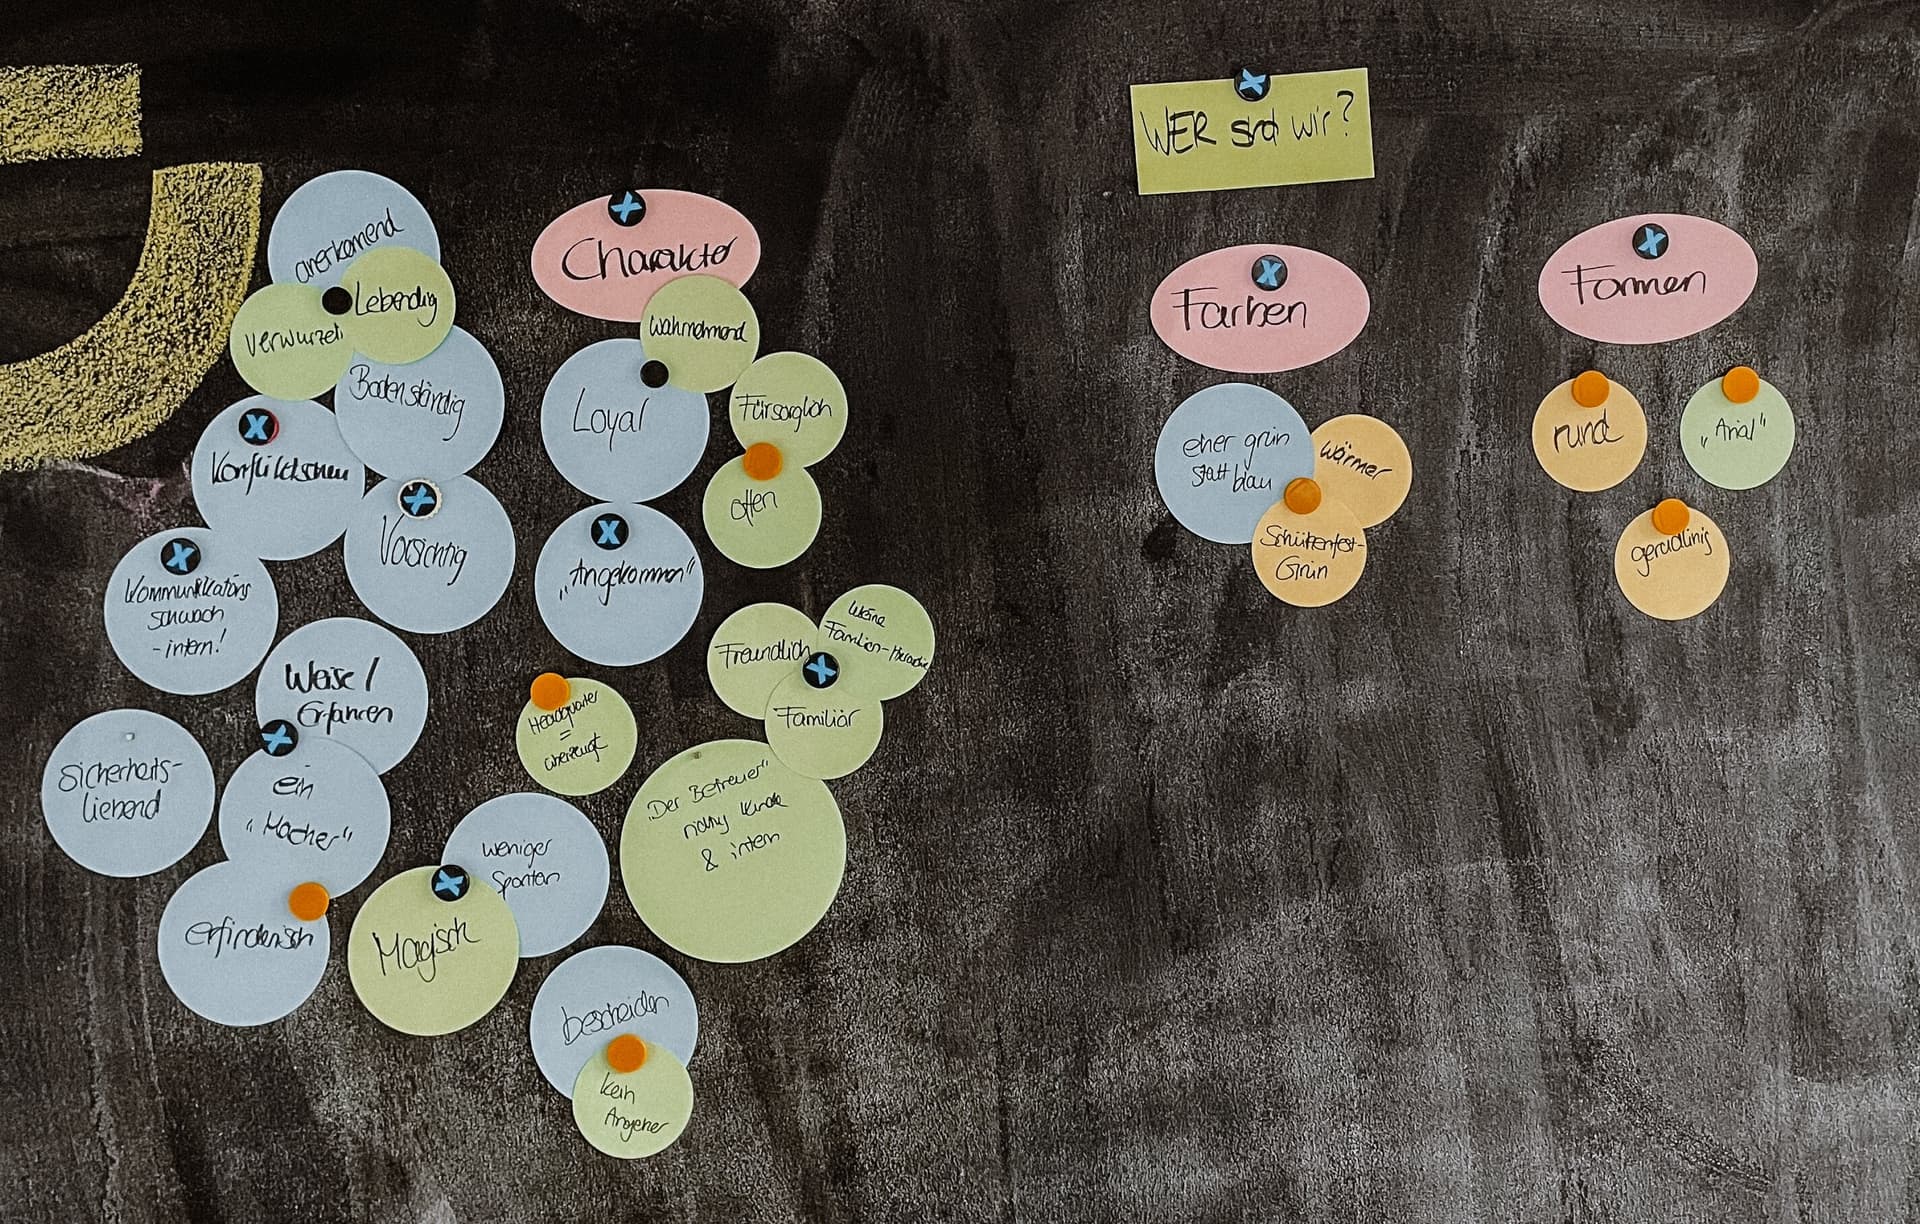 WER sind wir?
Charakter
anerkennend
Lebendig
verwurzelt
Bodenständig
Konfliktscheu
Vorsichtig
Kommunikations
schwach
-intern!
Weise /
Erfahren
Sicherheits-
liebend
ein
"Macher"
erfinderisch
Magisch
weniger
Spontan
wahrnehmend
Loyal
Fürsorglich
offen
„Angekommen"
Freundlich
Familiär
Headquarter
=
überzeugt
„Der Betreuer"
& intern
bescheiden
kein
Angeber
Farben
eher grün
statt blau
wärmer
Schützenfest-
Grün
Formen
rund
„Arial"
geradlinig